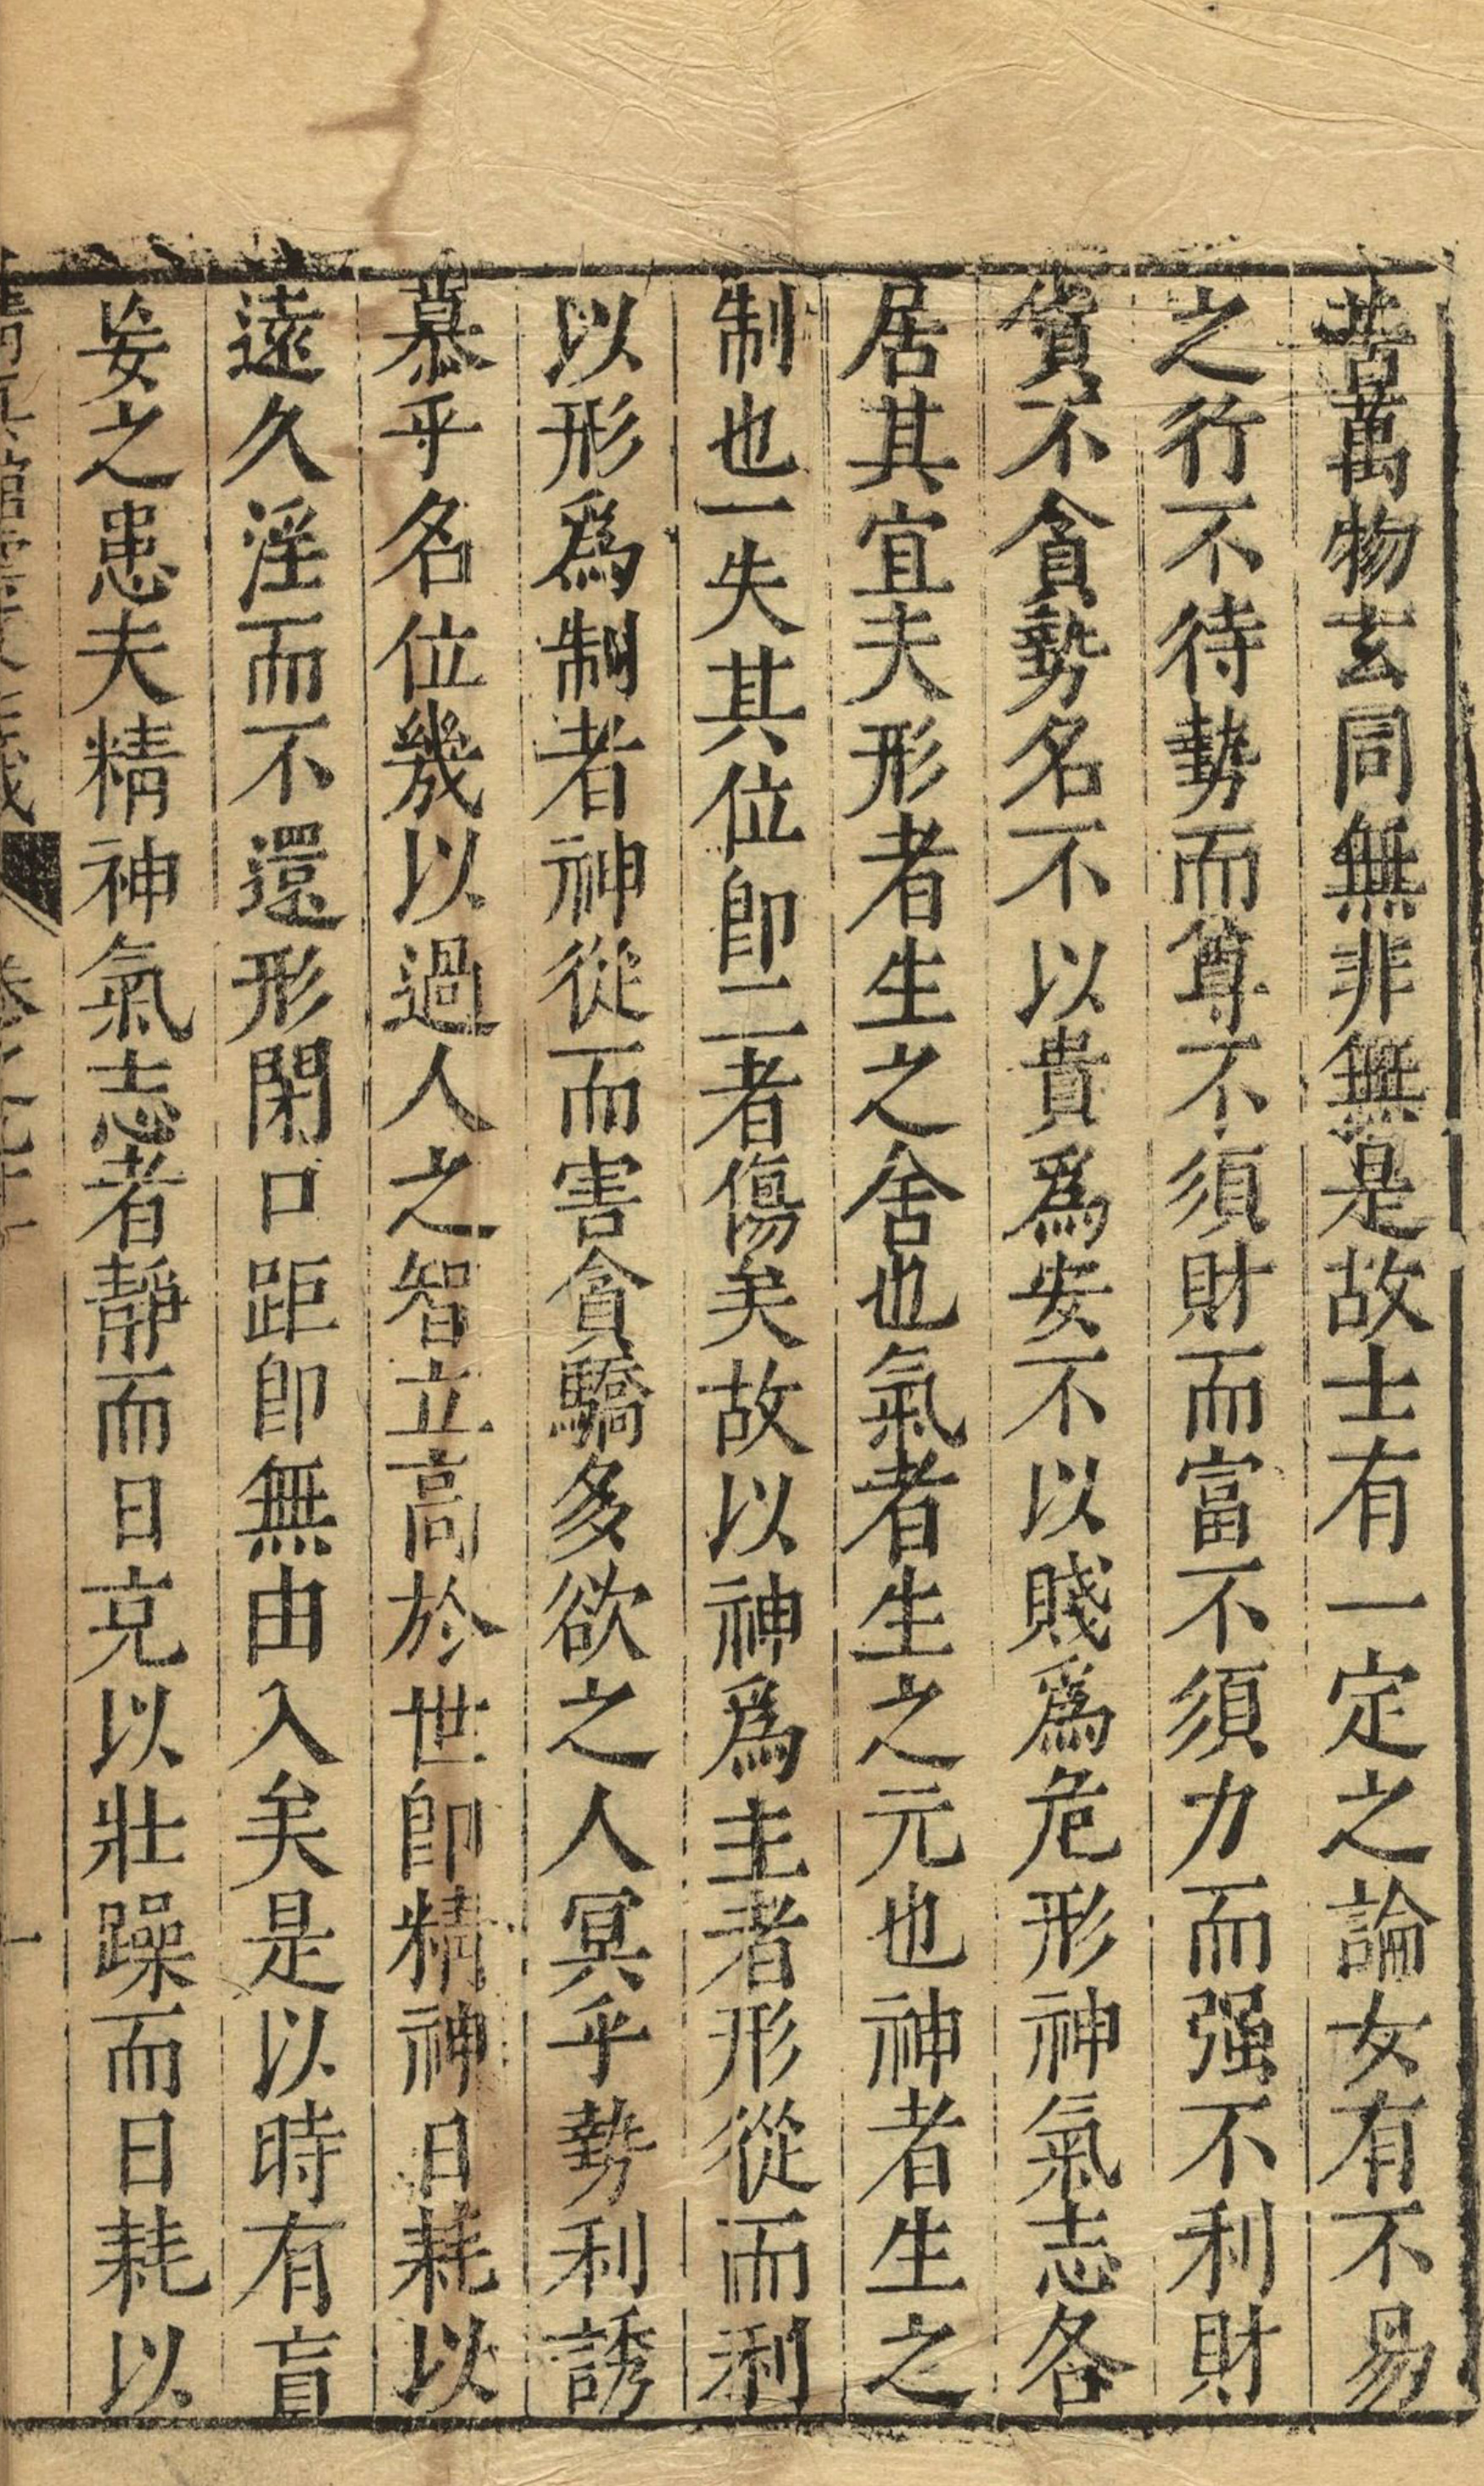 昔萬物玄同無非無是故士有一定之論女有不易
之行不待勢而尊不須財而富不須力而强不利財
貨不貪勢名不以貴爲安不以賤爲危形神氣志各
居其宜夫形者生之舍也氣者生之元也神者生之
制也一失其位卽二者傷矣故以神爲主者形從而利
以形爲制者神從而害貪驕多欲之人冥乎勢利誘
慕乎名位幾以過人之智立高於世卽精神日耗以
遠久淫而不還形閑口距卽無由入矣是以時有盲
妄之患夫精神氣志者靜而日充以壯躁而日耗以